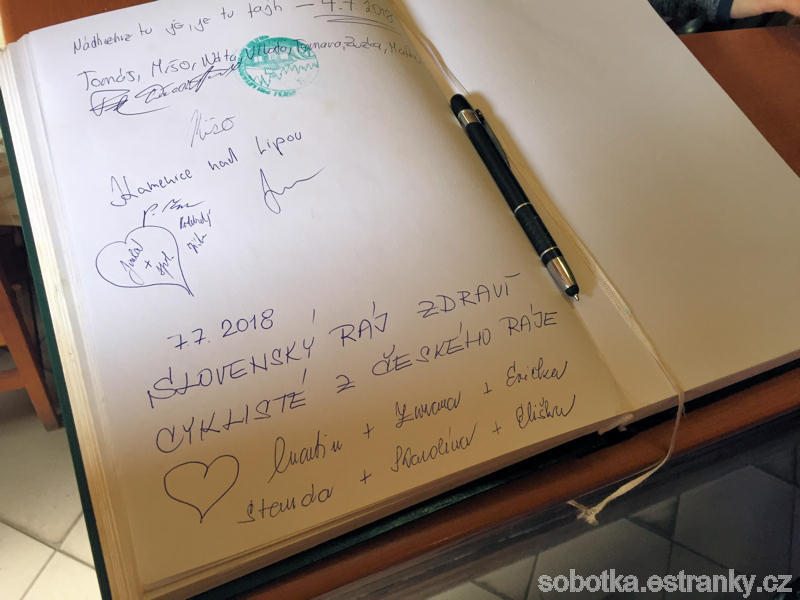 Nádherne tu je, je tu fajn – 4.7.2018
Tomáš, Mišo,
Mišo
Kamenice nad Lipou
7.7. 2018
SLOVENSKÝ RÁJ ZDRAVÍ
CYKLISTÉ Z ČESKÉHO RÁJE
Martin + Zuzana + Evička
Standa + Karolína + Eliška
sobotka.estranky.cz